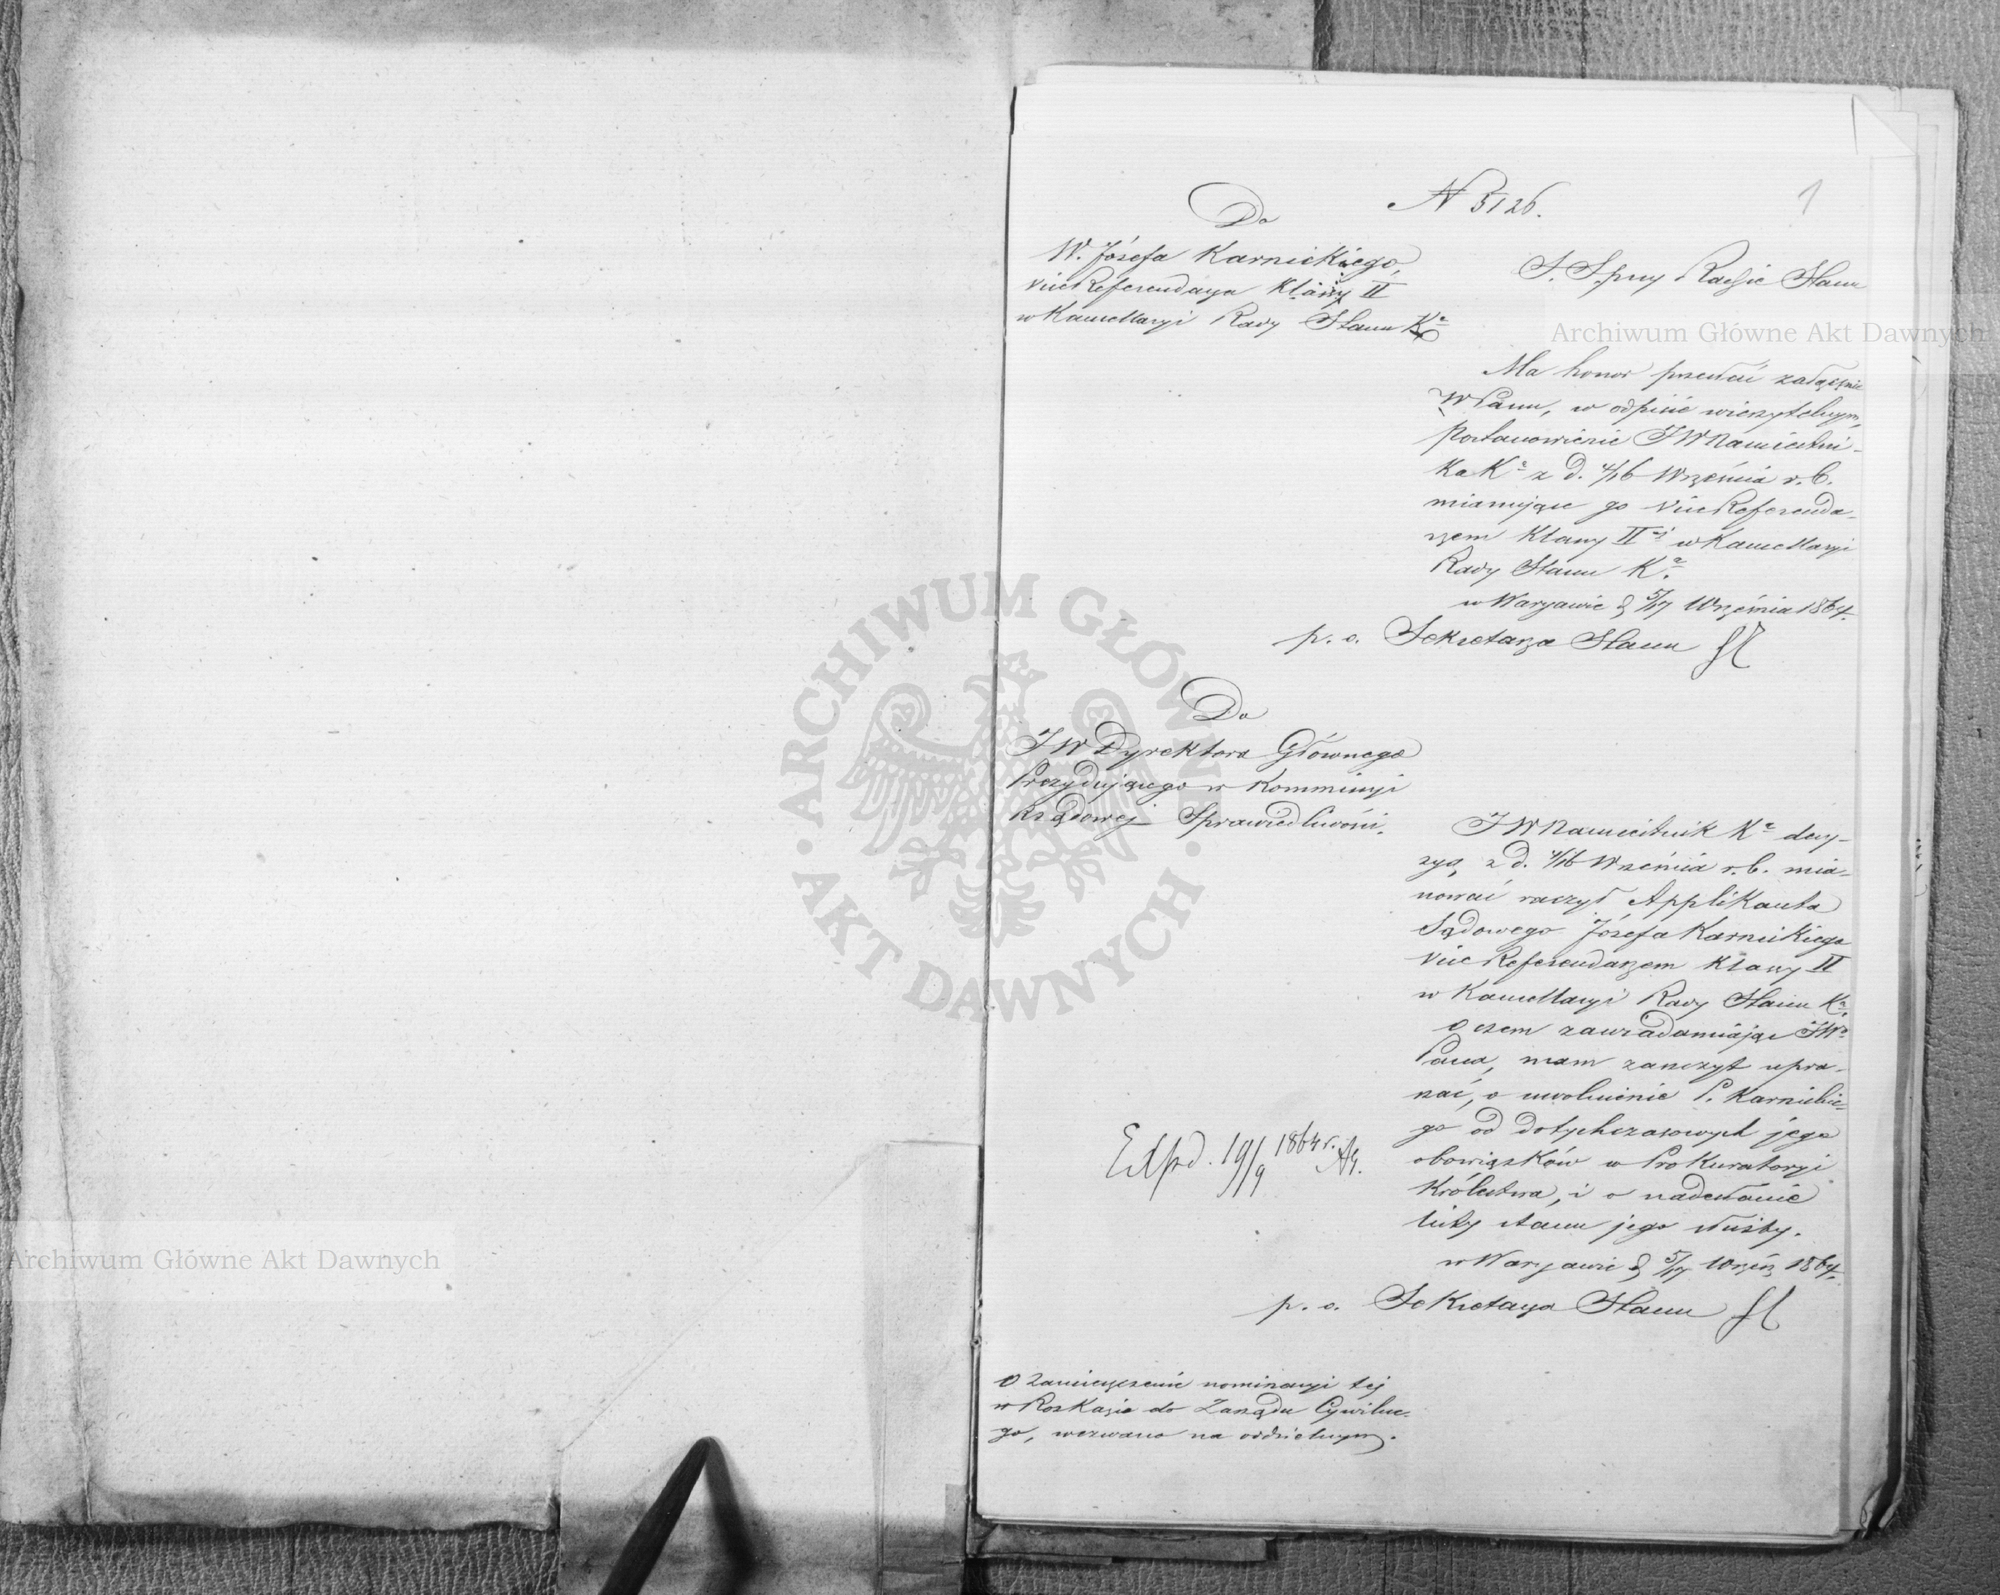 1
N 5126.
Do
W. Józefa Karnickiego,
ViceReferendarza Klassy II
w Kancellaryi Rady Stanu Kr
Radzie Stanu
Ma honor przesłać załącznie
WPanu, w odpisie wierzytelnym,
Postanowienie JWNamiestni-
ka Kr z d. 4/16 Września r. b.
mianujące go ViceReferenda-
rzem Klassy IIej w Kancellaryi
Rady Stanu Kr.
w Warszawie d 5/17 Września 1864.
p. o. Sekretarza Stanu
Do
JWDyrektora Głównego
Prezydującego w Kommissyi
Rządowej Sprawiedliwości.
JWNamiestnik Kr decy-
zyą z d. 4/16 Września r. b. mia-
nować raczył Applikanta
Sądowego Józefa Karnickiego
ViceReferendarzem Klassy II
w Kancellaryi Rady Stanu Kr,
o czem zawiadamiając JWo
Pana, mam zaszczyt upra-
szać, o uwolnienie P. Karnickie-
go od dotychczasowych jego
obowiązków w Prokuratoryi
Królestwa, i o nadesłanie
listy stanu jego służby.
w Warszawie d 5/17 Wrześ 1864.
p. o. Sekretarza Stanu
Exped. 19/9 1864 r.
O zamieszczenie nominacyi tej
w Rozkazie do Zarządu Cywilne-
go, wezwano na oddzielnym.
Archiwum Główne Akt Dawnych
Archiwum Główne Akt Dawnych
ARCHIWUM GŁÓWNE
AKT DAWNYCH